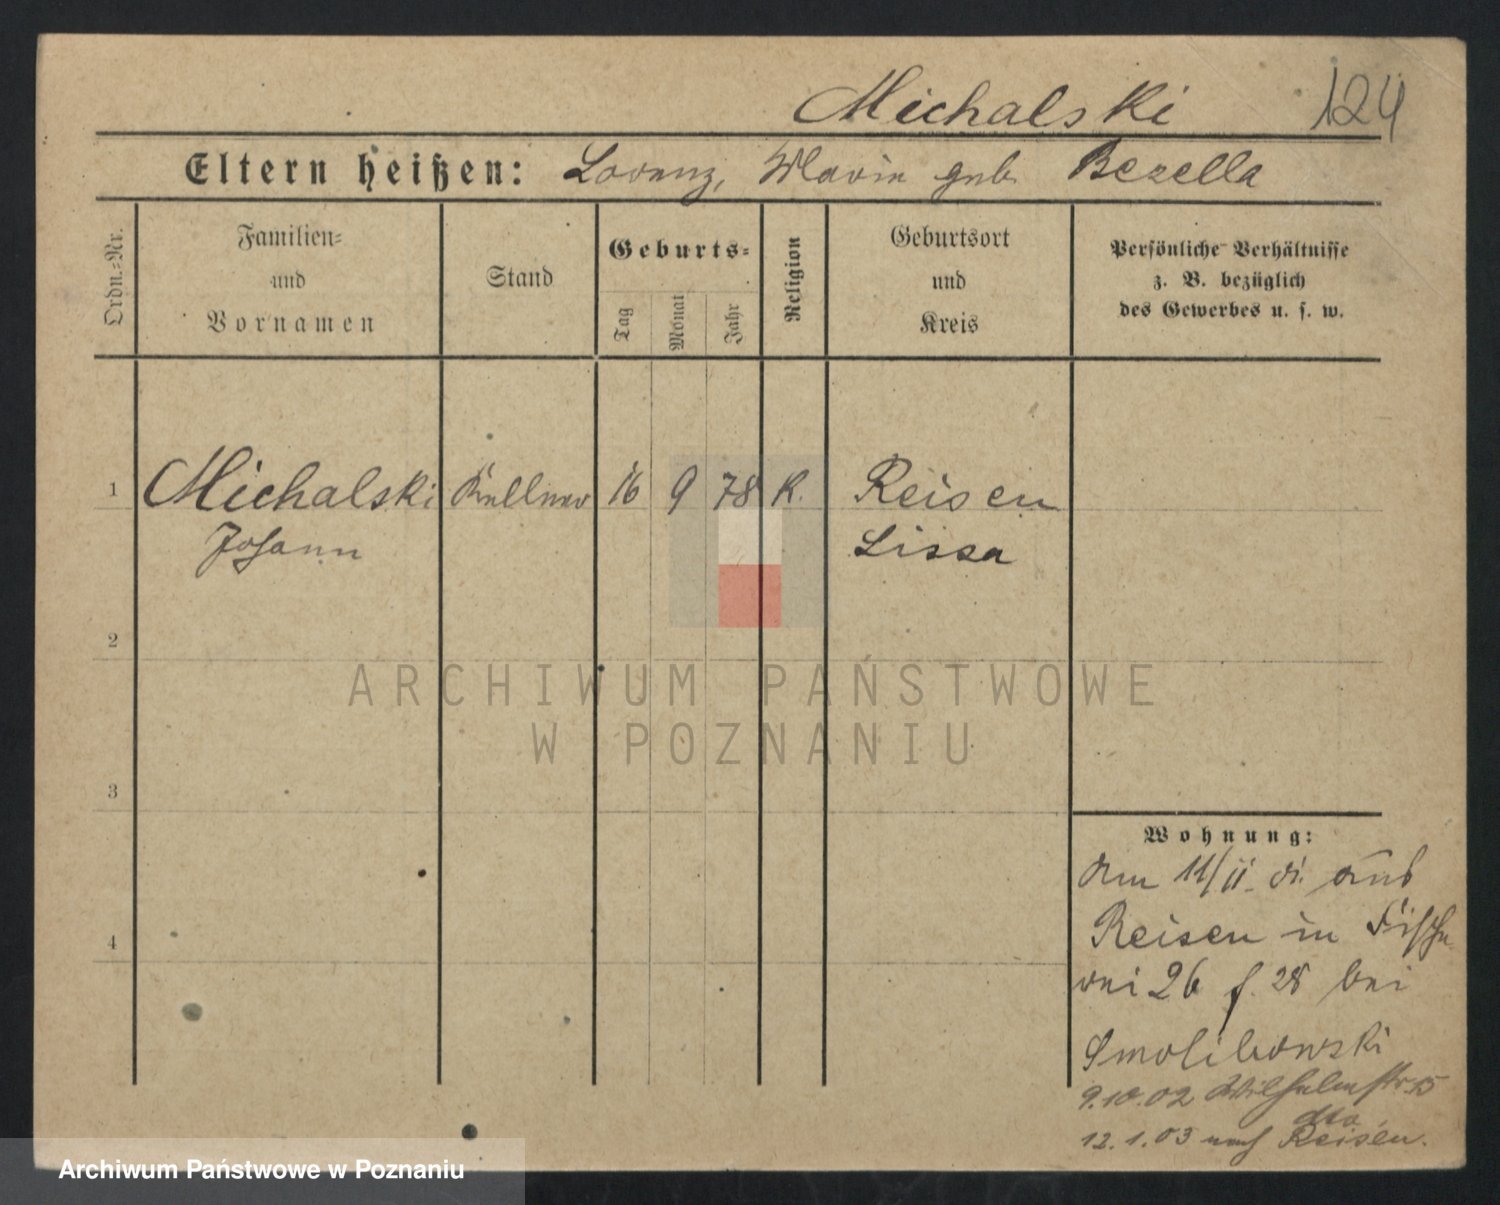 Michalski 124
Eltern heißen: Lorenz, Marie geb. Bezella
Ordn.=Nr.
Familien=
und
Vornamen
Stand
Geburts=
Tag
Monat
Jahr
Religion
Geburtsort
und
Kreis
Persönliche Verhältnisse
z. B. bezüglich
des Gewerbes u. s. w.
1 Michalski Kellner 16 9 78 K. Reisen
Johann Lissa
2
3
4
Wohnung:
Am 11/11. aus
Reisen in Fische
rei 26 f. 28 bei
9.10.02 Wilhelmstr 15
dto
12.1.03 nach Reisen.
ARCHIWUM PAŃSTWOWE
W POZNANIU
Archiwum Państwowe w Poznaniu